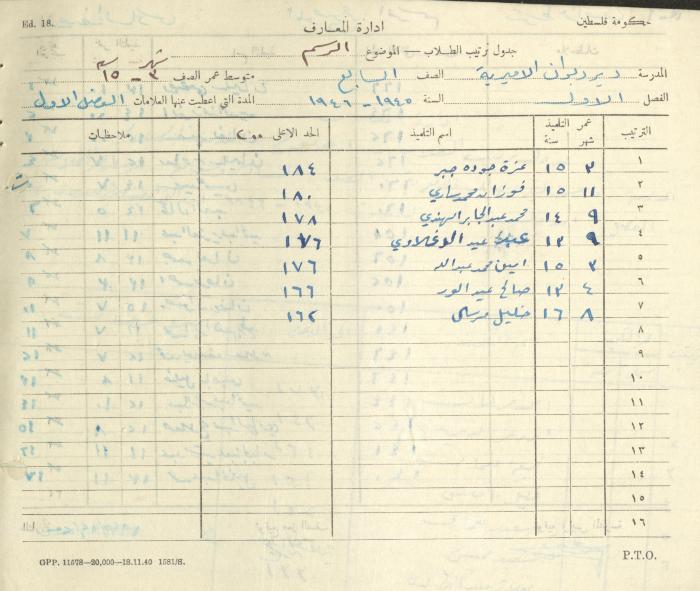 Ed. 18.
حكومة فلسطين
ادارة المعارف
جدول ترتيب الطلاب — الموضوع الرسم
المدرسة دير ديوان الاميرية الصف السابع متوسط عمر الصف ٣ - ١٥
الفصل الاول السنة ١٩٤٥ - ١٩٤٦ المدة التي اعطيت عنها العلامات الفصل الاول
الترتيب عمر التلميذ شهر سنة اسم التلميذ الحد الاعلى ٢٠٠ ملاحظات
١ ٣ ١٥ عزة جوده جبر ١٨٤
٢ ١١ ١٥ فوزات محمد ساري ١٨٠
٣ ٩ ١٤ محمد عبد الجابر الهندي ١٧٨
٤ ٩ ١٣ عبد ١٧٦
٥ ٣ ١٥ امين محمد عبدالله ١٧٦
٦ ٤ ١٣ صالح عبد ١٦٦
٧ ٨ ١٦ خليل مرسي ١٦٢
٨
٩
١٠
١١
١٢
١٣
١٤
١٥
١٦
GPP. 11578—20,000—18.11.40 1581/S.
P.T.O.